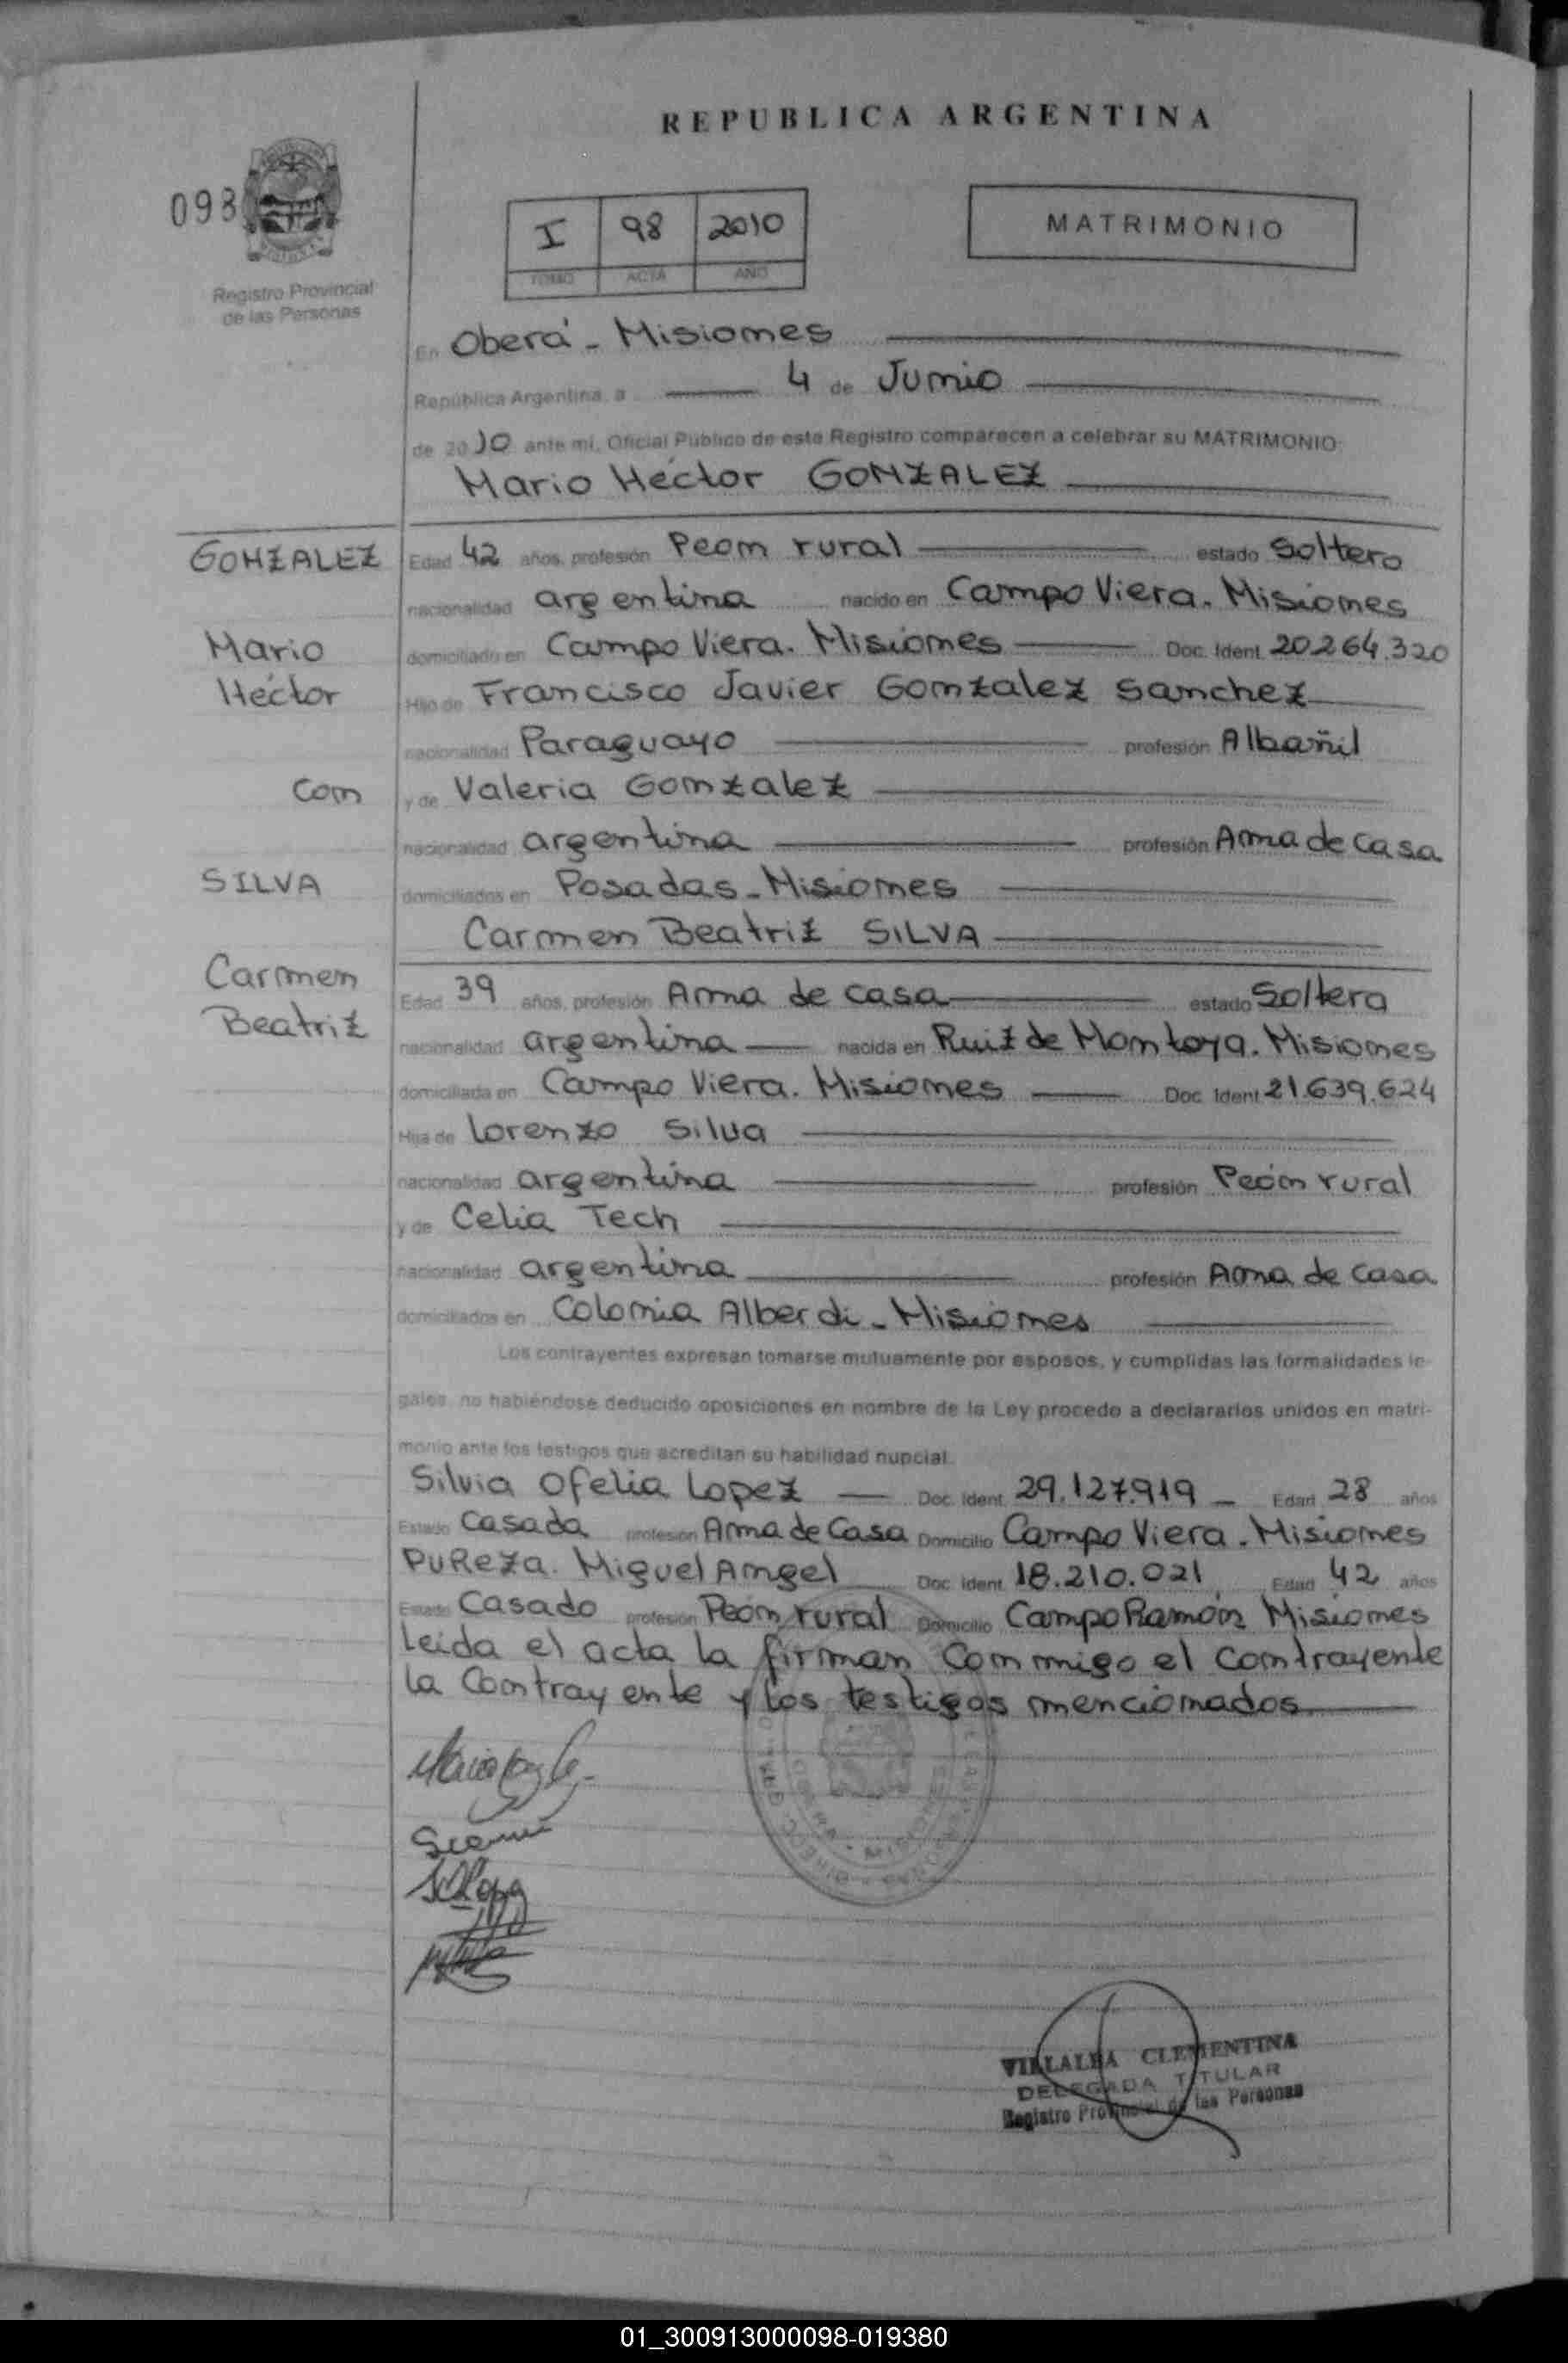 REPUBLICA ARGENTINA
098
I 98 2010
TOMO ACTA AÑO
MATRIMONIO
Registro Provincial
de las Personas
En Oberá - Misiones
República Argentina, a 4 de Junio
de 2010 ante mi, Oficial Público de este Registro comparecen a celebrar su MATRIMONIO:
Mario Héctor GONZALEZ
GONZALEZ
Mario
Héctor
Con
SILVA
Carmen
Beatriz
Edad 42 años, profesión Peon rural estado Soltero
nacionalidad argentina nacido en Campo Viera. Misiones
domiciliado en Campo Viera. Misiones Doc. Ident. 20.264.320
Hijo de Francisco Javier Gonzalez Sanchez
nacionalidad Paraguayo profesión Albañil
y de Valeria Gonzalez
nacionalidad argentina profesión Ama de casa
domiciliados en Posadas - Misiones
Carmen Beatriz SILVA
Edad 39 años, profesión Ama de casa estado Soltera
nacionalidad argentina nacida en Ruiz de Montoya. Misiones
domiciliada en Campo Viera. Misiones Doc. Ident. 21.639.624
Hija de Lorenzo Silva
nacionalidad argentina profesión Peón rural
y de Celia Tech
nacionalidad argentina profesión Ama de casa
domiciliados en Colonia Alberdi - Misiones
Los contrayentes expresan tomarse mutuamente por esposos, y cumplidas las formalidades le-
gales, no habiéndose deducido oposiciones en nombre de la Ley procedo a declararlos unidos en matri-
monio ante los testigos que acreditan su habilidad nupcial.
Silvia Ofelia Lopez — Doc. Ident. 29.127.919 - Edad 28 años
Estado Casada profesión Ama de Casa Domicilio Campo Viera. Misiones
PUREZA. Miguel Angel Doc. Ident. 18.210.021 Edad 42 años
Estado Casado profesión Peón rural Domicilio Campo Ramón Misiones
Leida el acta la firman conmigo el contrayente
la Contrayente y los testigos mencionados
VILLALBA CLEMENTINA
DELEGADA TITULAR
Registro Provincial de las Personas
01_300913000098-019380